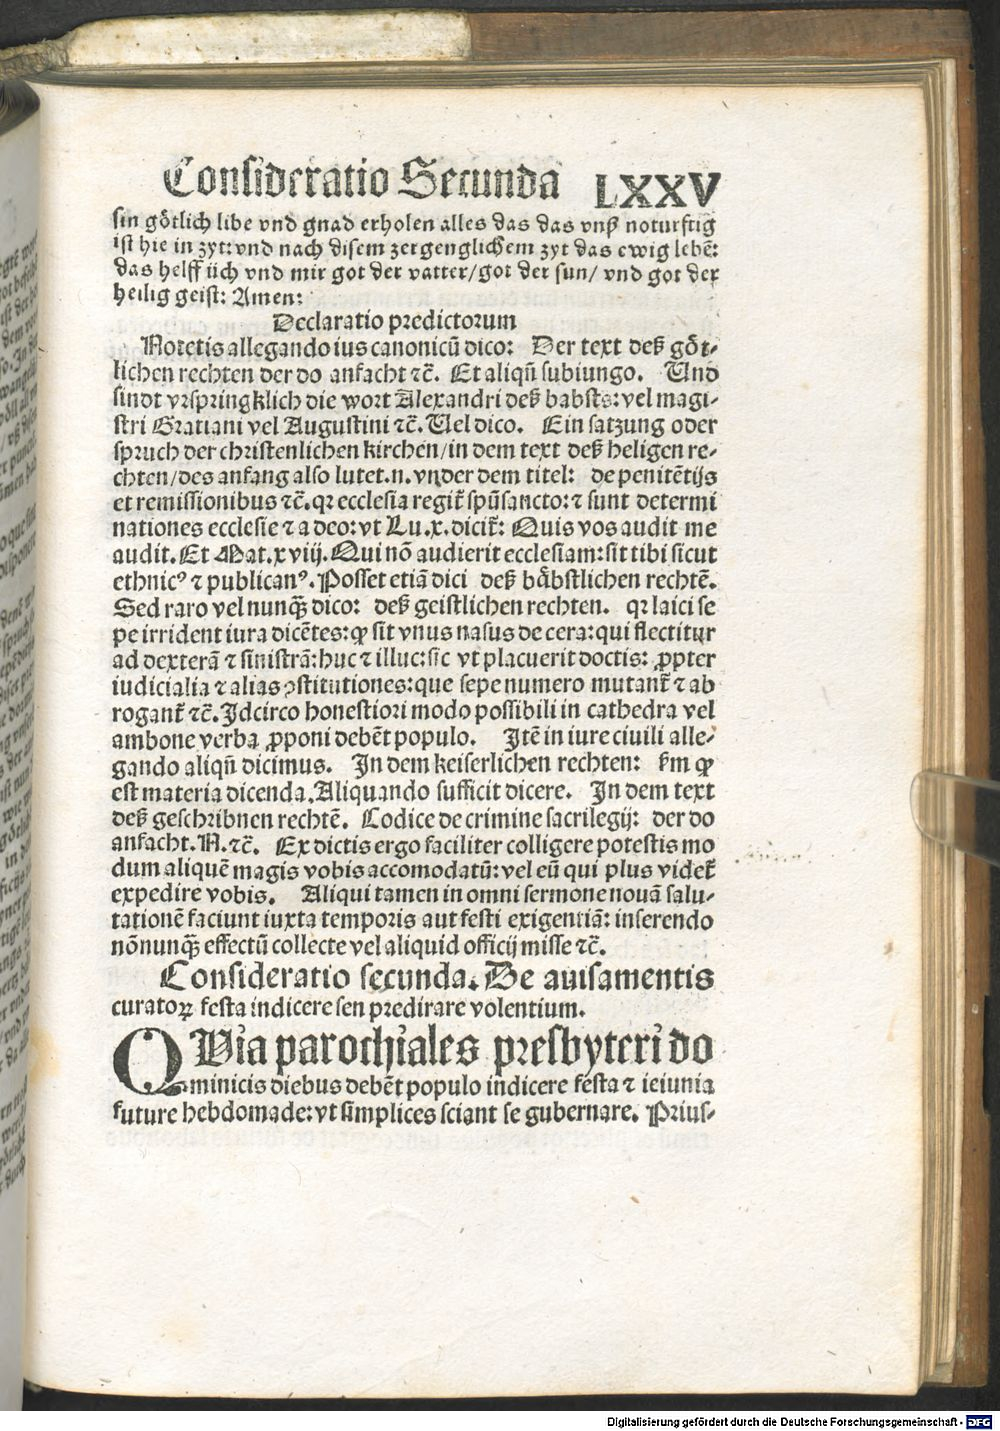 Consideratio Secunda LXXV
sin götlich libe vnd gnad erholen alles das das vnß noturftig
ist hie in zyt: vnd nach disem zergenglichem zyt das ewig lebē:
das helff üch vnd mir got der vatter/ got der sun/ vnd got der
heilig geist: Amen:
Declaratio predictorum
Notetis allegando ius canonicū dico: Der text deß göt-
lichen rechten der do anfacht ⁊c̄. Et aliqn̄ subiungo. Und
sindt vrspringklich die wort Alexandri deß babsts: vel magi-
stri Gratiani vel Augustini ⁊c̄. Uel dico. Ein satzung oder
spruch der christenlichen kirchen/ in dem text deß heligen re-
chten/ des anfang also lutet .n. vnder dem titel: de penitētijs
et remissionibus ⁊c̄. qꝛ ecclesia regit̄ spū sancto: ⁊ sunt determi
nationes ecclesie ⁊ a deo: vt Lu. x. dicit̄: Quis vos audit me
audit. Et Mat. xviij. Qui nō audierit ecclesiam: sit tibi sicut
ethnicꝰ ⁊ publicanꝰ. Posset etiā dici deß bäbstlichen rechtē.
Sed raro vel nunqȝ̄ dico: deß geistlichen rechten. qꝛ laici se
pe irrident iura dicētes: ꝙ sit vnus nasus de cera: qui flectitur
ad dexterā ⁊ sinistrā: huc ⁊ illuc: sic vt placuerit doctis: ꝓpter
iudicialia ⁊ alias ꝯstitutiones: que sepe numero mutant̄ ⁊ ab
rogant̄ ⁊c̄. Idcirco honestiori modo possibili in cathedra vel
ambone verba ꝓponi debēt populo. Itē in iure ciuili alle-
gando aliqn̄ dicimus. In dem keiserlichen rechten: km̄ ꝙ
est materia dicenda. Aliquando sufficit dicere. In dem text
deß geschribnen rechtē. Codice de crimine sacrilegij: der do
anfacht. N. ⁊c̄. Ex dictis ergo faciliter colligere potestis mo
dum aliquē magis vobis accomodatū: vel eū qui plus videt̄
expedire vobis. Aliqui tamen in omni sermone nouā salu-
tationē faciunt iuxta temporis aut festi exigentiā: inserendo
nōnunqȝ̄ effectū collecte vel aliquid officij misse ⁊c̄.
Consideratio secunda. De auisamentis
curatoꝝ festa indicere sen predirare volentium.
QVia parochiales presbyteri do
minicis diebus debēt populo indicere festa ⁊ ieiunia
future hebdomade: vt simplices sciant se gubernare. Prius-
Digitalisierung gefördert durch die Deutsche Forschungsgemeinschaft - DFG